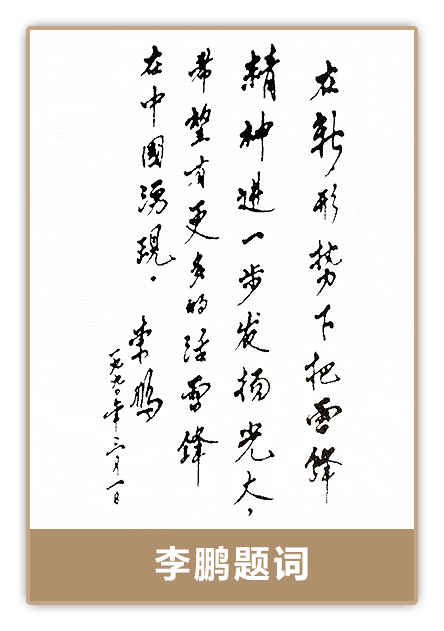 在新形势下把雷锋
精神进一步发扬光大，
希望有更多的活雷锋
在中國湧現。
李鹏
一九九〇年三月一日
李鹏题词